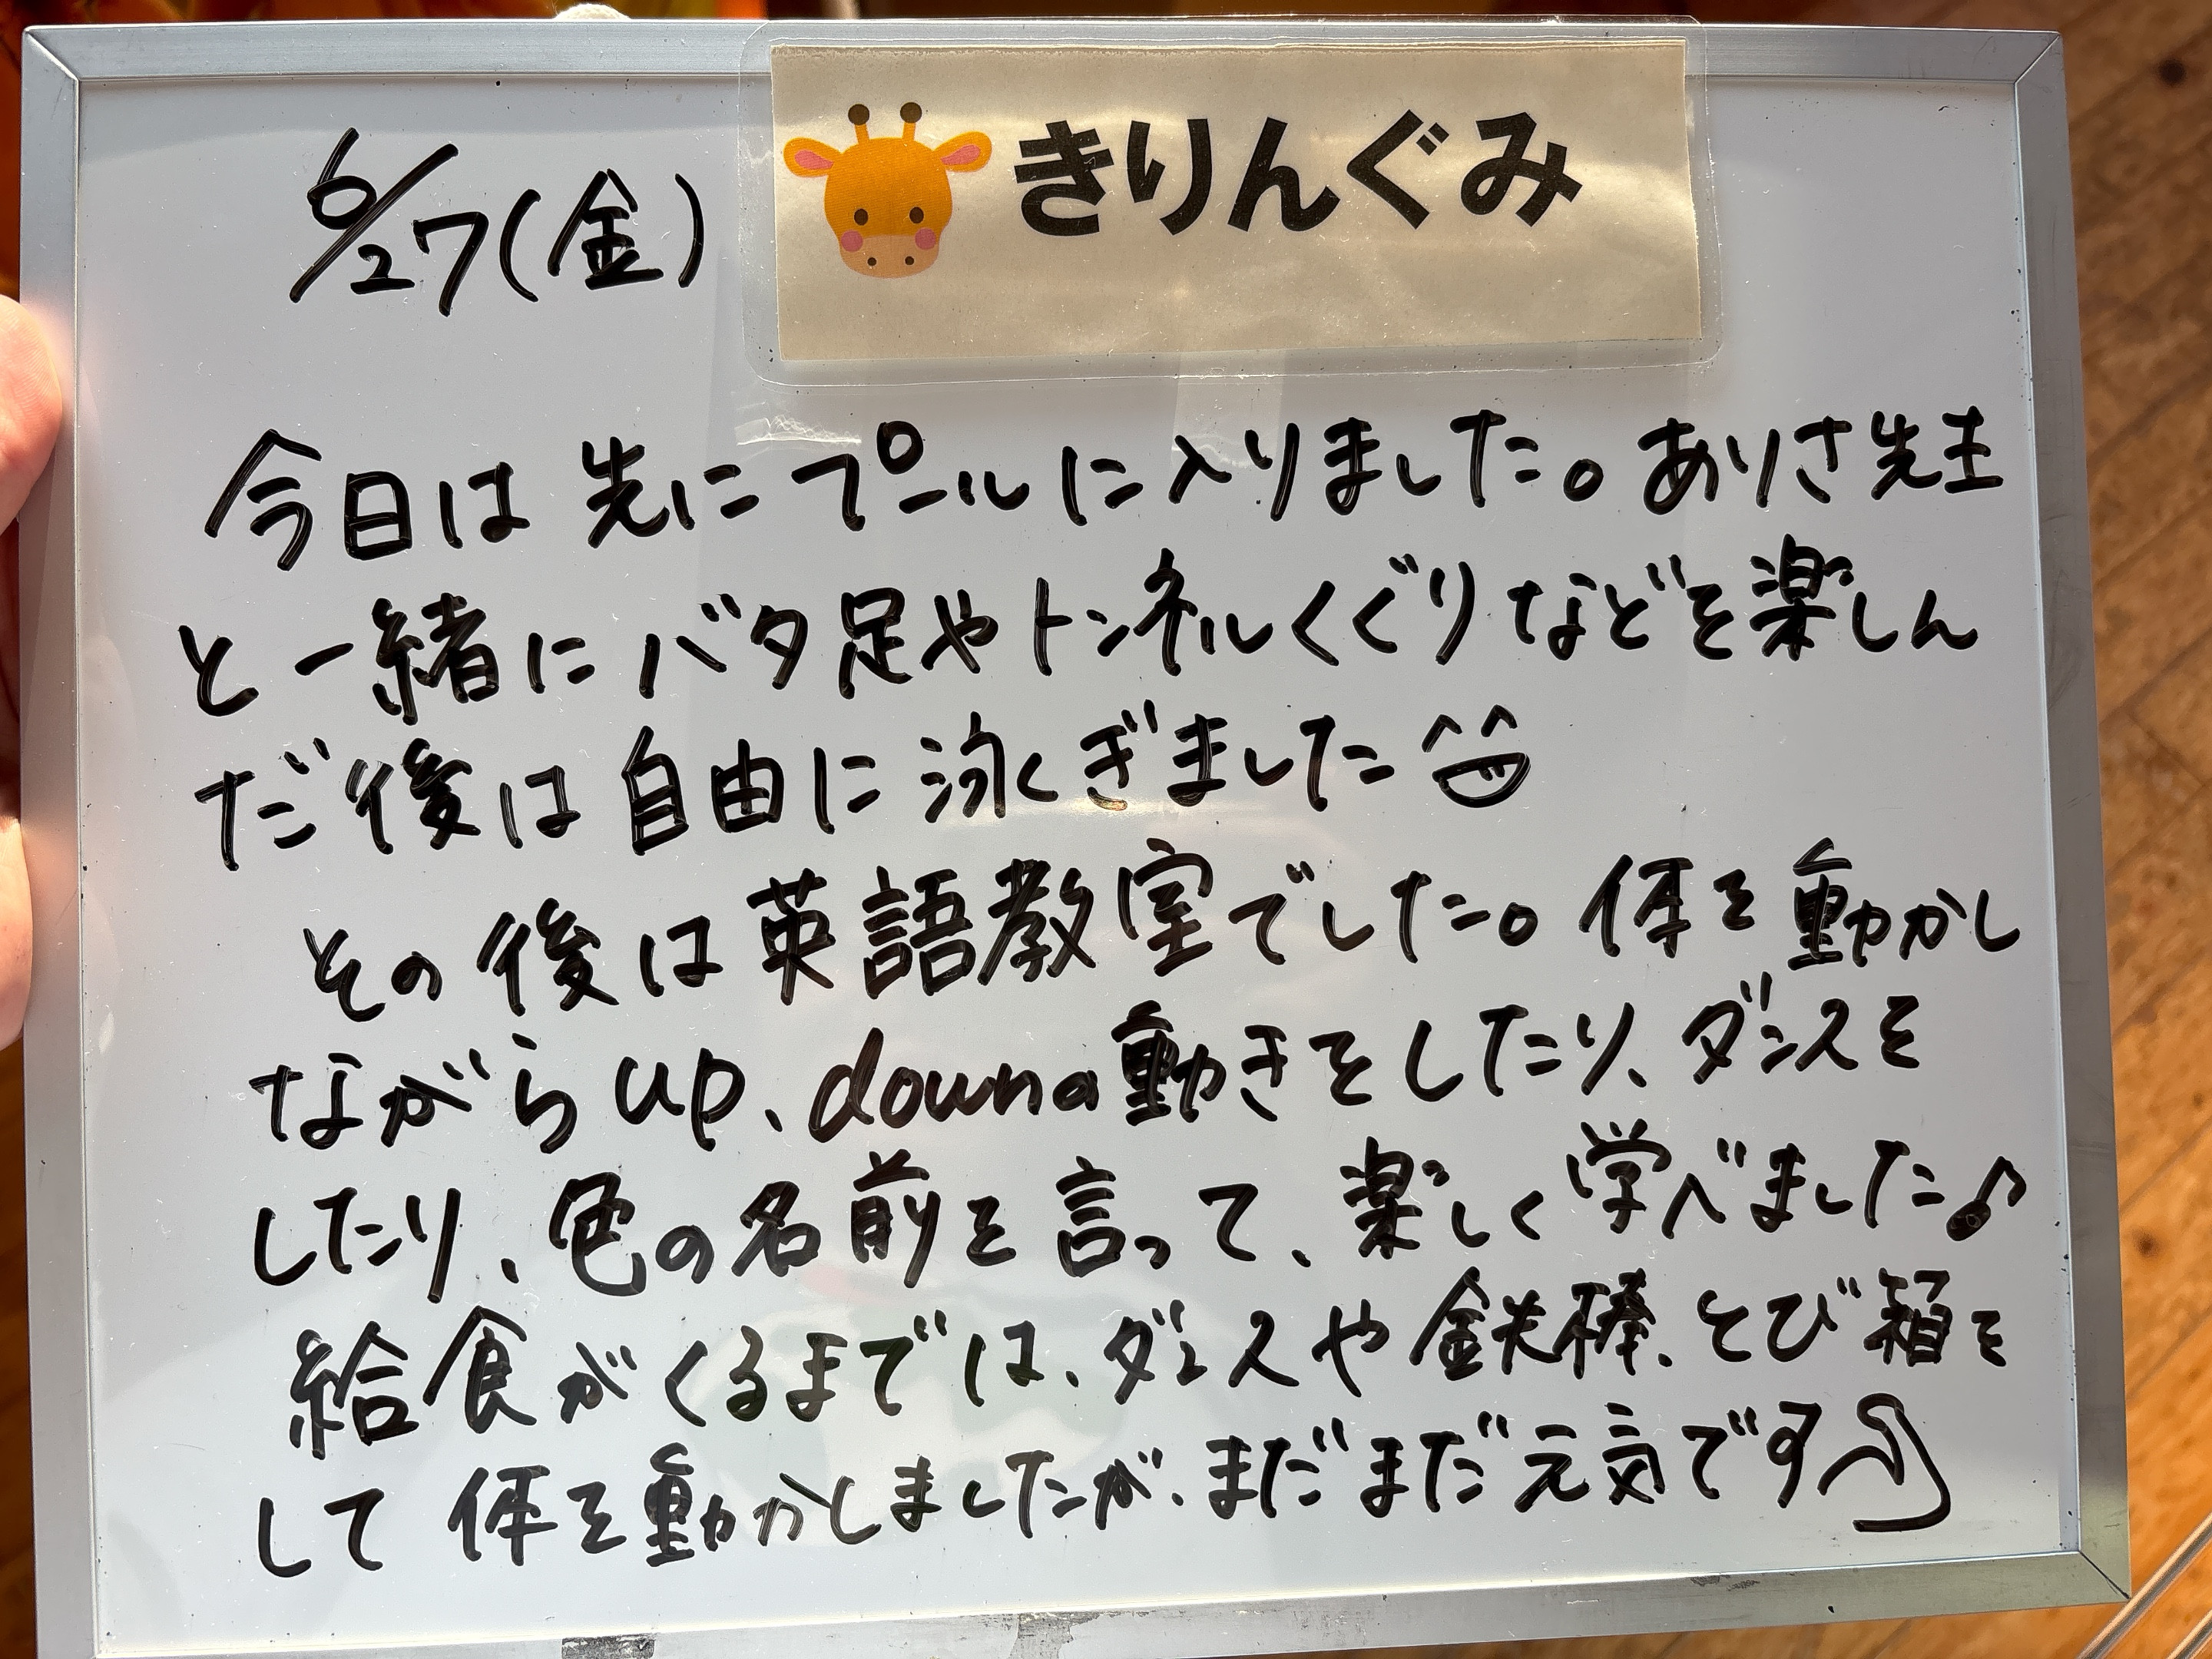 6/27(金)
きりんぐみ
今日は先にプールに入りました。ありさ先生
と一緒にバタ足やトンネルくぐりなどを楽しん
だ後は自由に泳くぎました
その後は英語教室でした。体を動かし
ながらup、downの動きをしたり、ダンスを
したり、色の名前を言って、楽しく学べました♪
給食がくるまでは、ダンスや鉄棒、とび箱を
して体を動かしましたが、まだまだ元気です